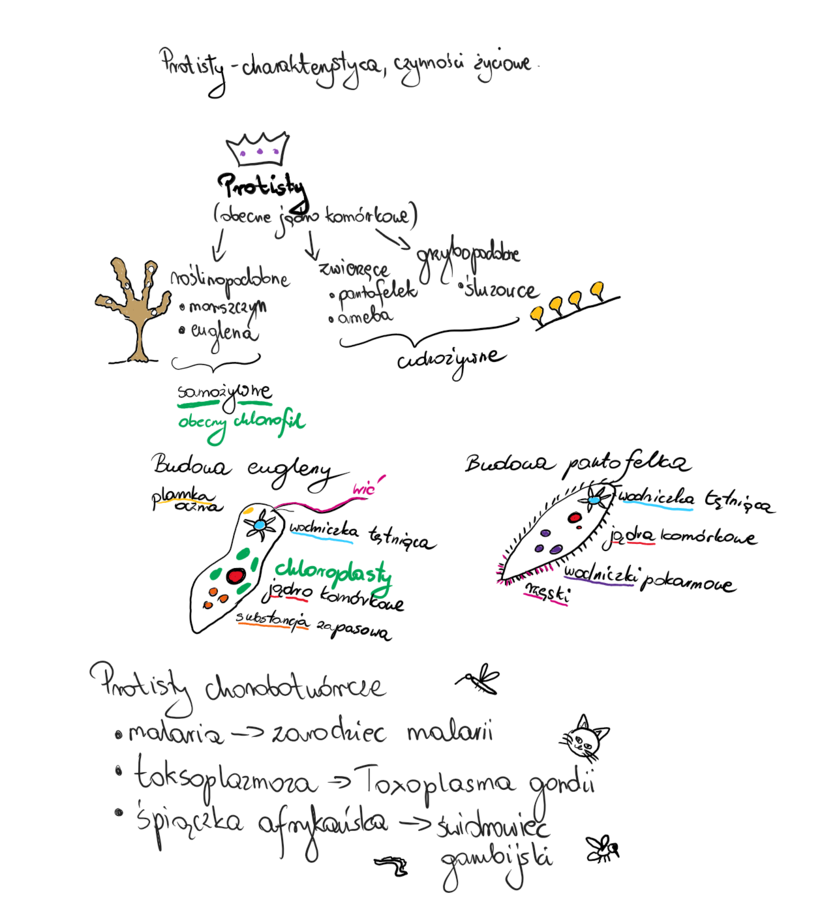 Protisty - charakterystyca, czymości życiowe.
Protisty
(obecne jądro komórkowe)
roślinopodobne
• morszczyn
• euglena
samożywne
obecny chlorofil
zwierzęce
• pantofelek
• ameba
grzybopodobne
• śluzowce
cudzożywne
Budowa eugleny
plamka
oczna
wić
wodniczka tętniąca
chloroplasty
jądro komórkowe
substancja zapasowa
Budowa pantofelka
wodniczka tętniąca
jądra komórkowe
wodniczki pokarmowe
rzęski
Protisty chorobotwórcze
• malaria -> zarodziec malarii
• toksoplazmoza -> Toxoplasma gondii
• śpiączka afrykańska -> świdrowiec
gambijski